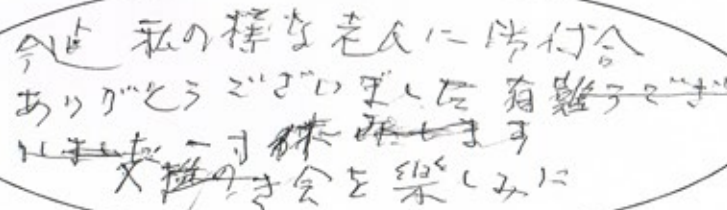 今迄 私の様な老人に御付合
ありがとうございました 有難うござ
いました 一寸 休みします
又 の き会を楽しみに